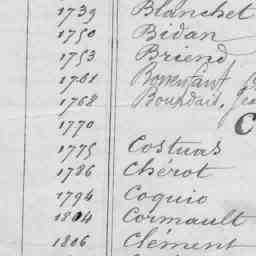 1739 Blanchet
1750 Bidan
1753 Briend
1761 Bonenfant
1768 Bourdail, Jea
1770 C
1775 Costuas
1786 Chérot
1794 Coquio
1804 Cormault
1806 Clément